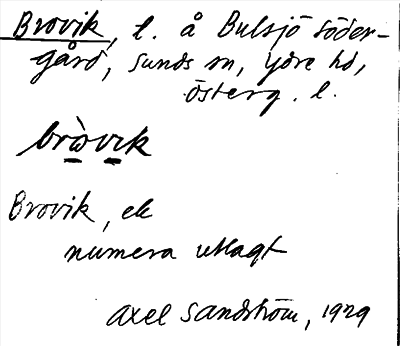 Brovik, l. å Bulsjö Söder-
gård, Sunds sn, Ydre hd,
Österg. l.
bròvik
Brovik, ek
numera utlagt
Axel Sandström, 1929